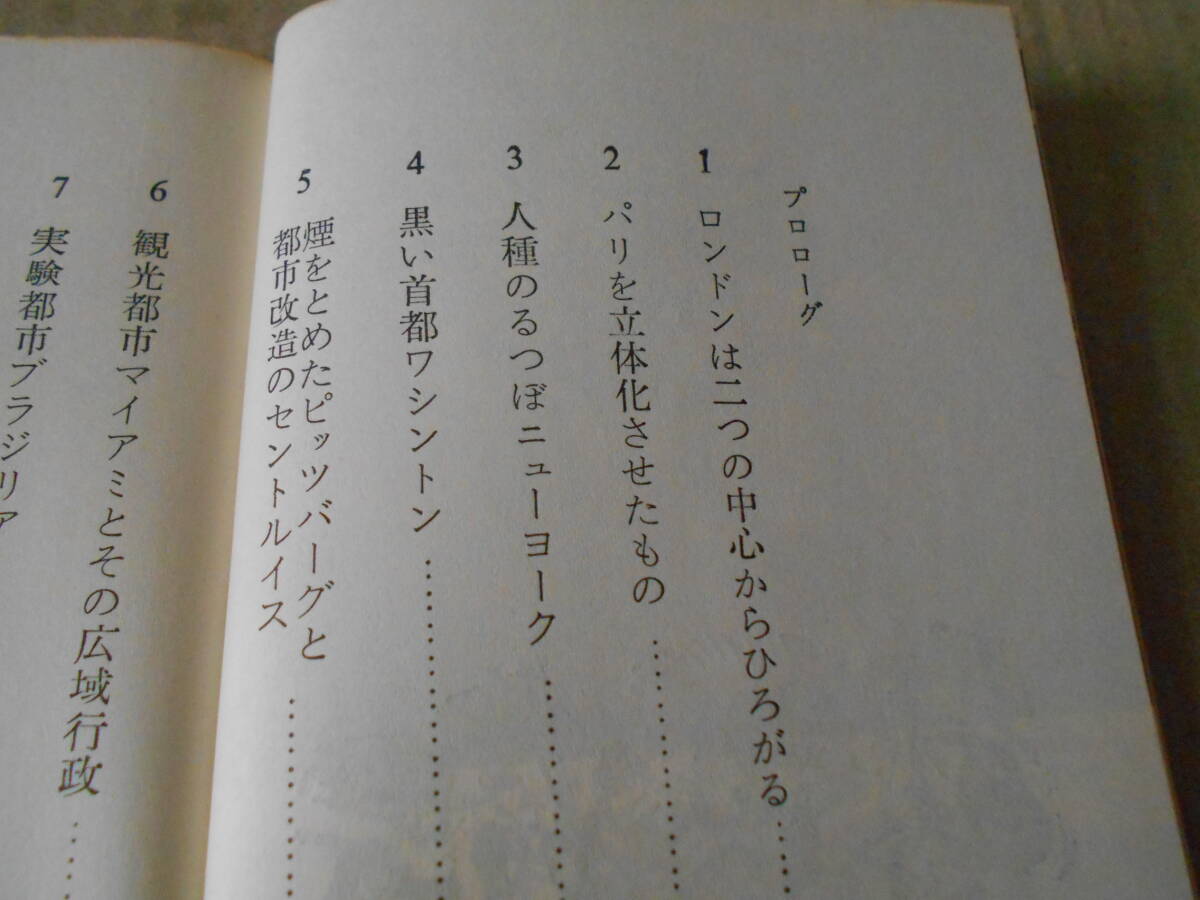 プロローグ
1 ロンドンは二つの中心からひろがる
2 パリを立体化させたもの
3 人種のるつぼニューヨーク
4 黒い首都ワシントン
5 煙をとめたピッツバーグと
都市改造のセントルイス
6 観光都市マイアミとその広域行政
7 実験都市ブラジリア